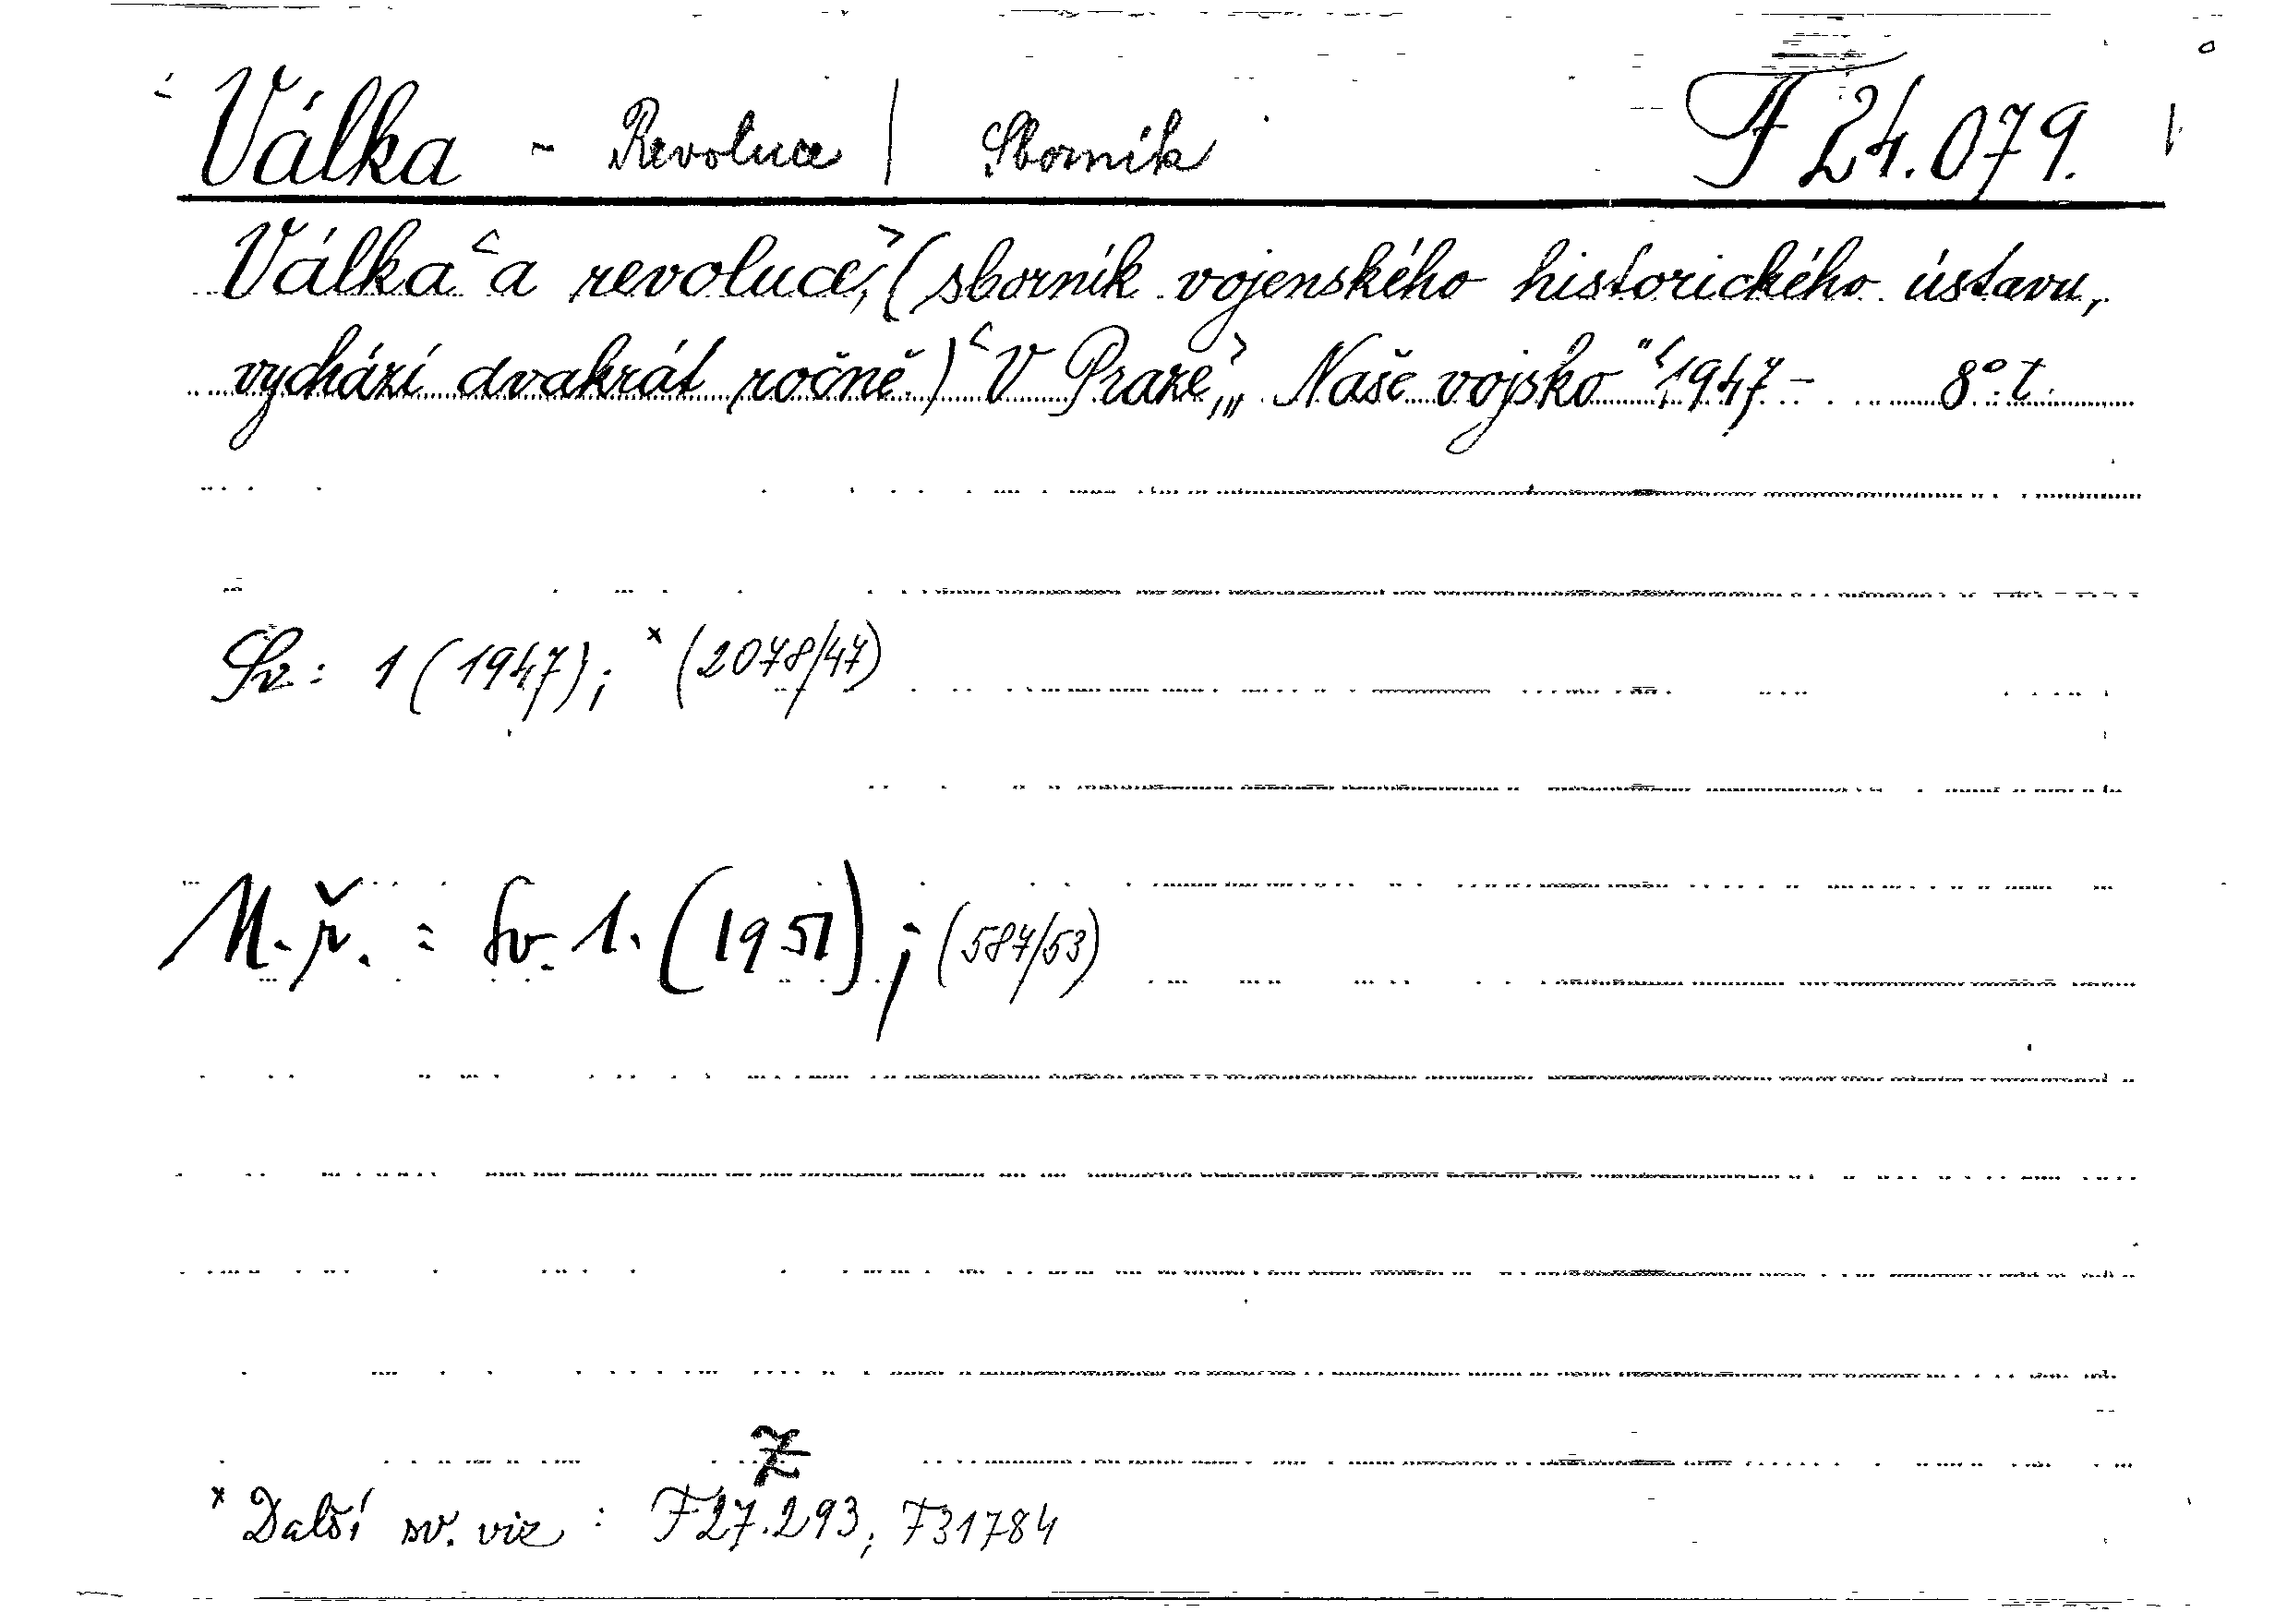 Válka - Revoluce | Sborník F 24.079.
Válka a revoluce, (sborník vojenského historického ústavu,
vychází dvakrát ročně.) V Praze, „Naše vojsko" 1947 - 8° t.
Sv.: 1 (1947); x (2078/47)
M.ř. : Sv. 1. (1951); (587/53)
Z
x Další sv. viz : F27.293, F31784